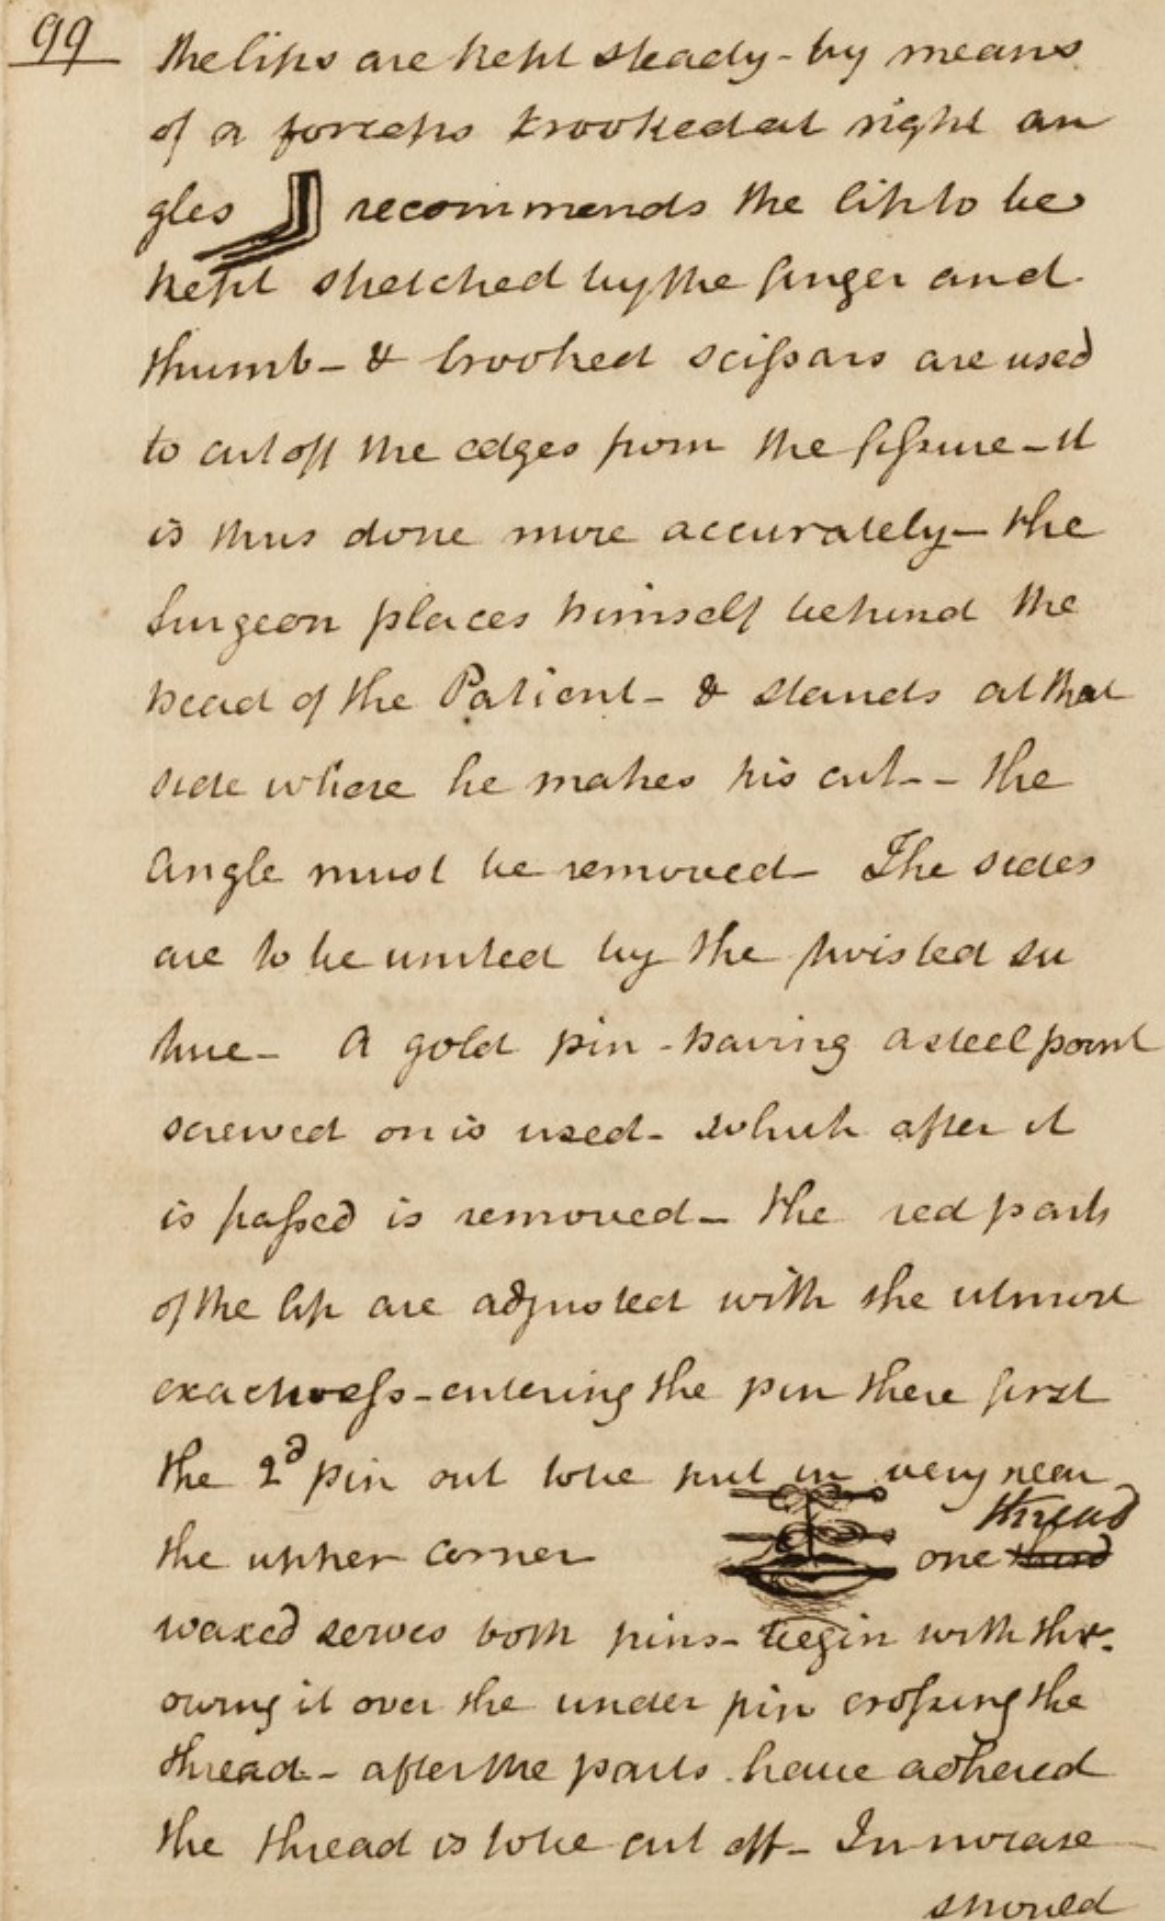 99
the lips are kept steady - by means
of a forceps krooked at right an
gles recommends the lip to be
kept stretched by the finger and
thumb - & krooked scissars are used
to cut off the edges from the fissure - it
is thus done more accurately - the
Surgeon places himself behind the
head of the Patient - & stands at that
side where he makes his cut - - the
Angle must be removed - The sides
are to be united by the twisted su
ture - A gold pin - having a steel point
screwed on is used - which after it
is passed is removed - the red parts
of the lip are adjusted with the utmost
exactness - entering the pin there first
the 2d pin out to be put in very near
thread
the upper corner one third
waxed serves both pins - begin with thr-
owing it over the under pin crossing the
thread - after the parts have adhered
the thread is to be cut off - In no case
should